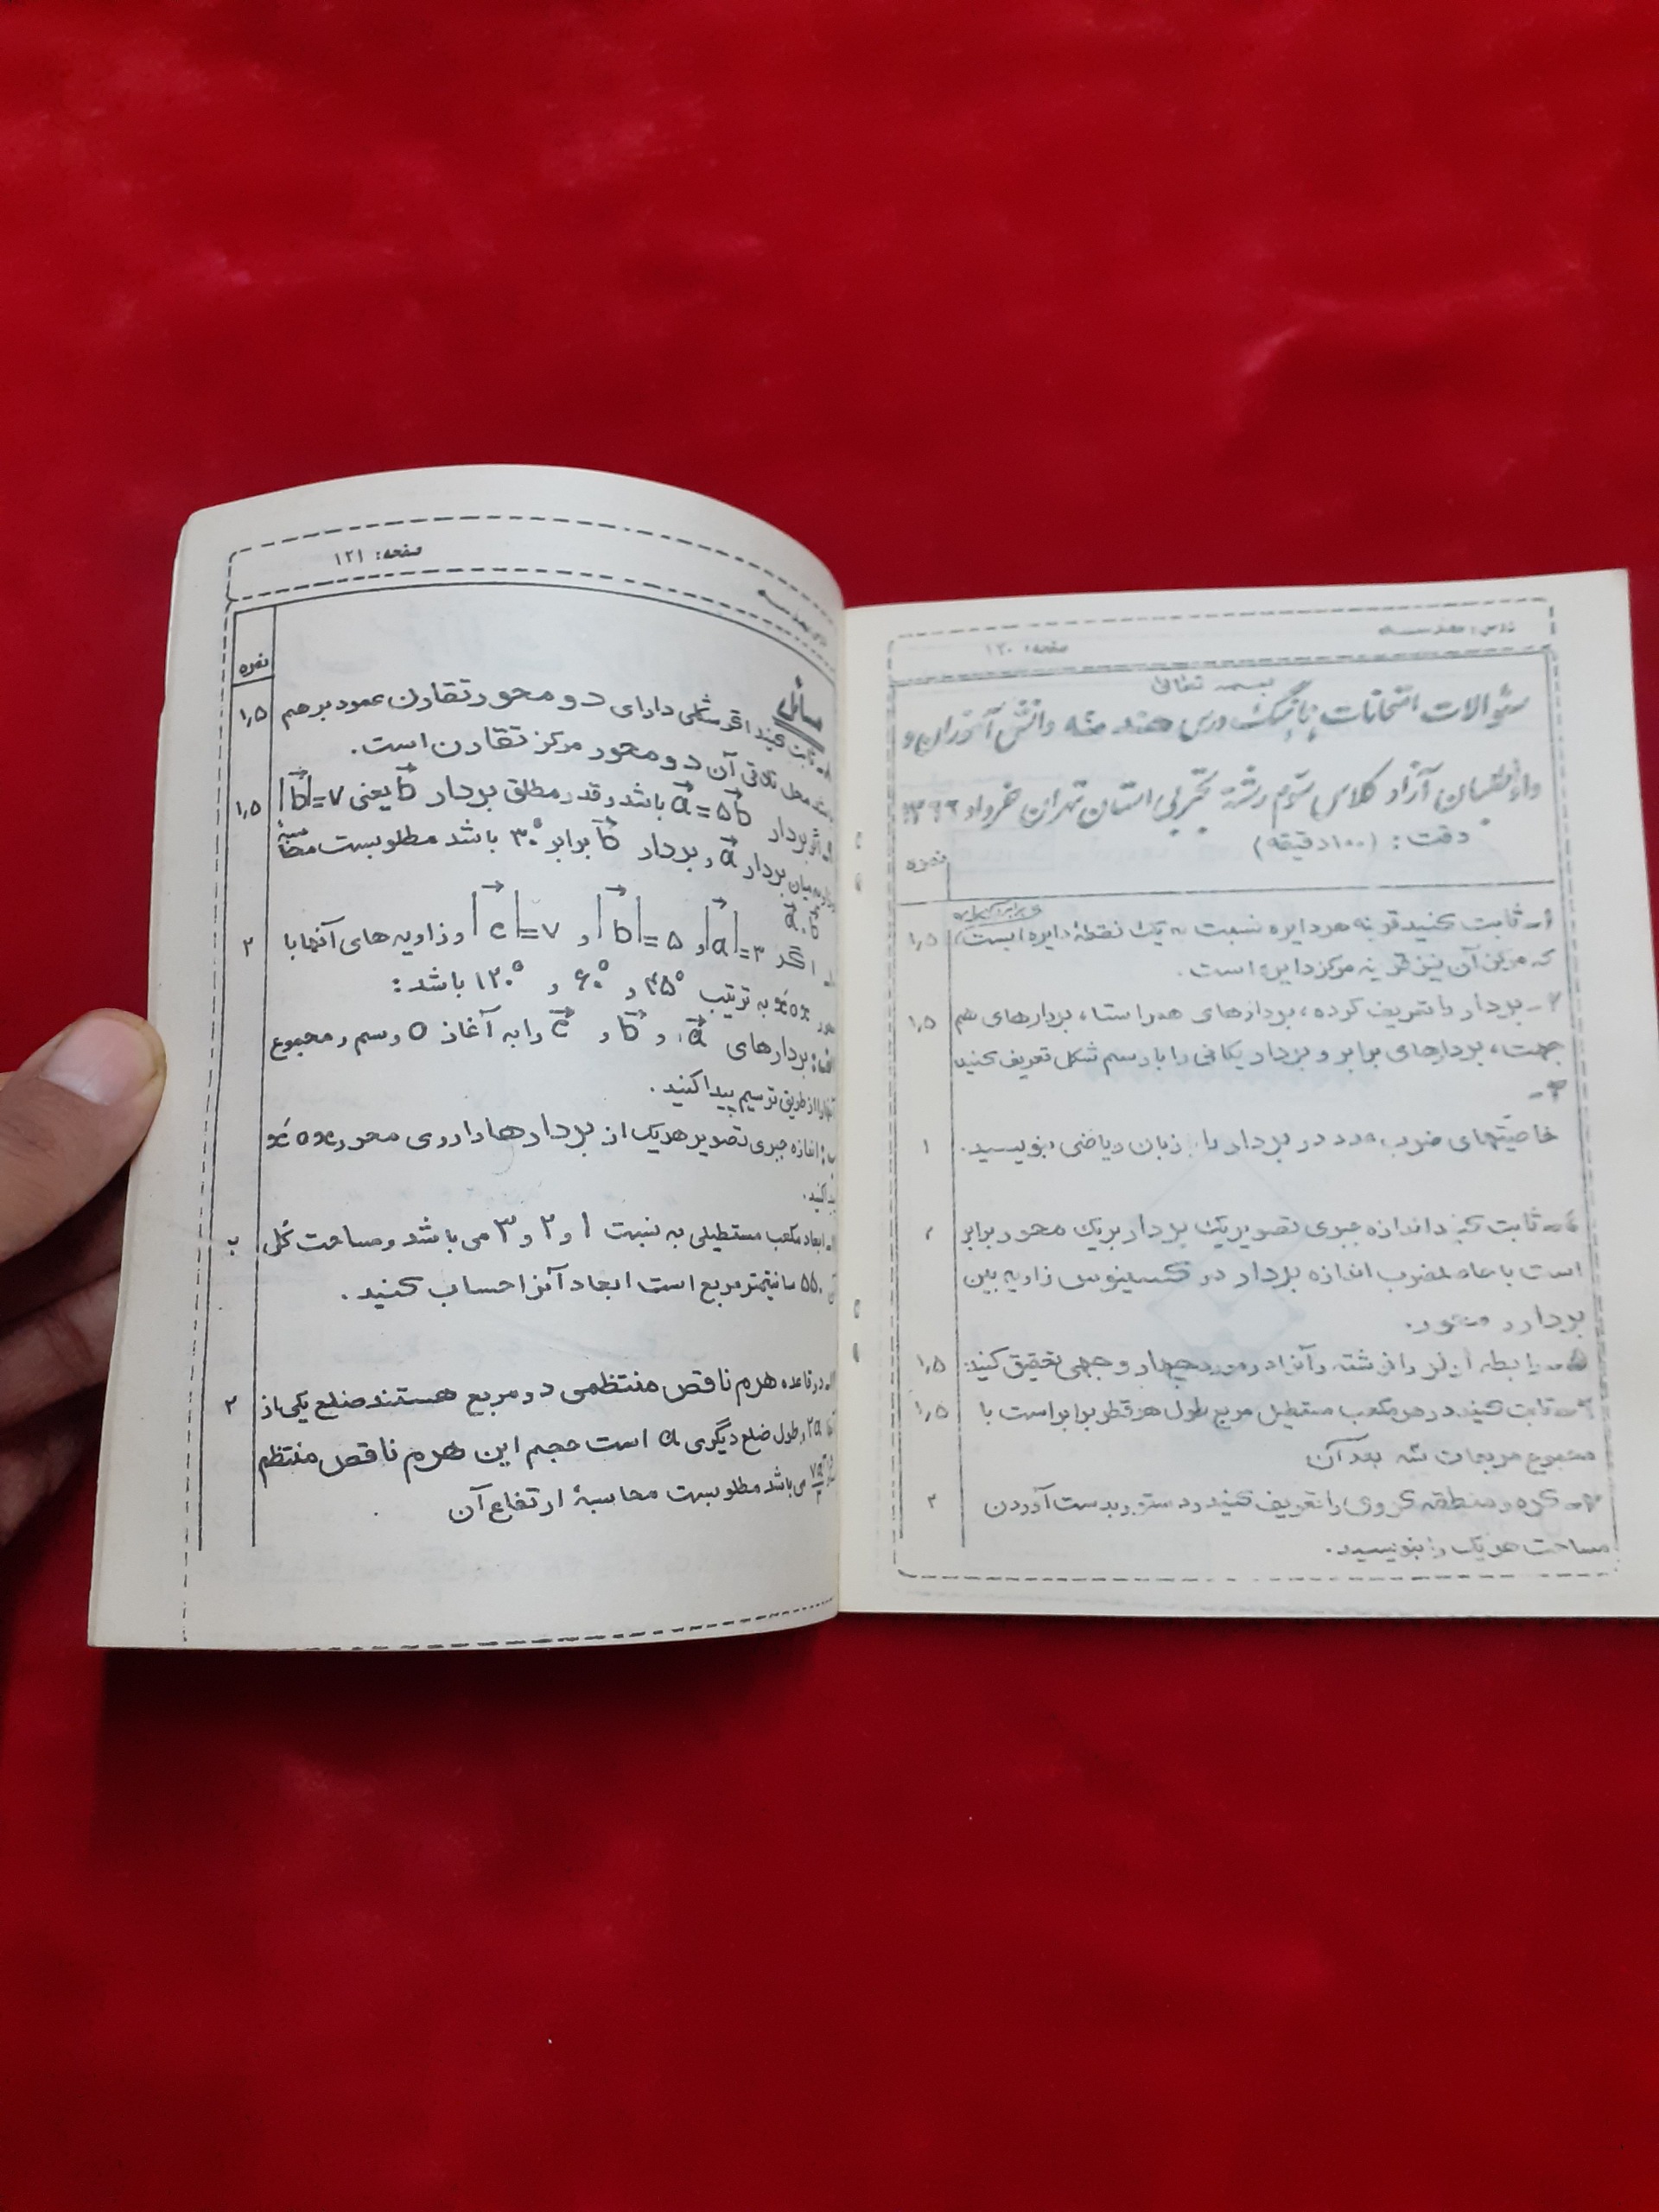 درس: هندسه
صفحه: ۱۲۰
بسمه تعالی
سئوالات امتحانات هماهنگ درس هندسه دانش آموزان و
داوطلبان آزاد کلاس سوم رشته تجربی استان تهران خرداد ۱۳۶۶
وقت: (۱۰۰ دقیقه)
نمره
۱- ثابت کنید قرینه هر دایره نسبت به یک نقطه دایره ایست ۱٫۵
که مرکز آن نیز قرینه مرکز دایره است.
۲- بردار را تعریف کرده، بردارهای همراستا، بردارهای هم ۱٫۵
جهت، بردارهای برابر و بردار یکانی را با رسم شکل تعریف کنید
۳-
خاصیتهای ضرب عدد در بردار را با زبان ریاضی بنویسید. ۱
۴- ثابت کنید اندازه جبری تصویر یک بردار بر یک محور برابر ۲
است با حاصلضرب اندازه بردار در کسینوس زاویه بین
بردار و محور.
۵- رابطه اولر را نوشته و آنرا در مورد چهار وجهی تحقیق کنید: ۱٫۵
۶- ثابت کنید در هر مکعب مستطیل مربع طول هر قطر برابر است با ۱٫۵
مجموع مربعات سه بعد آن
۷- کره و منطقه کروی را تعریف کنید و دستور بدست آوردن ۲
مساحت هر یک را بنویسید.
صفحه: ۱۲۱
نمره
مسائل
۸- ثابت کنید اگر شکلی دارای دو محور تقارن عمود بر هم ۱٫۵
باشد محل تلاقی آن دو محور مرکز تقارن است.
۹- اگر بردار a⃗ = ۵b⃗ باشد و قدر مطلق بردار b⃗ یعنی |b⃗|=۷ ۱٫۵
زاویه میان بردار a⃗ و بردار b⃗ برابر ۳۰° باشد مطلوبست محاسبهٔ
a⃗.b⃗
اگر |a⃗|=۳ و |b⃗|=۵ و |c⃗|=۷ و زاویه های آنها با ۲
محور x'ox به ترتیب ۴۵° و ۶۰° و ۱۲۰° باشد:
الف: بردارهای a⃗ و b⃗ و c⃗ را به آغاز O رسم و مجموع
آنها را از طریق ترسیم پیدا کنید.
ب: اندازه جبری تصویر هر یک از بردارها را روی محور x'ox
پیدا کنید.
ابعاد مکعب مستطیلی به نسبت ۱ و ۲ و ۳ می باشد و مساحت کل ۲
آن ۵۵۰ سانتیمتر مربع است ابعاد آنرا حساب کنید.
در قاعده هرم ناقص منتظمی دو مربع هستند ضلع یکی از ۲
آنها ۲a و طول ضلع دیگری a است حجم این هرم ناقص منتظم
می باشد مطلوبست محاسبهٔ ارتفاع آن